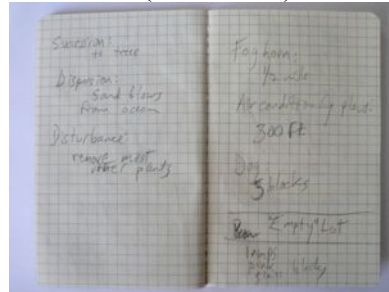 Succession:
to tree
Dispersion:
Sand blows
from ocean
Disturbance:
remove most
other plants
Fog horn:
1/2 mile
Air conditioning plant:
300 Ft.
Dog
5 blocks
"Empty" Lot
lamps
pink